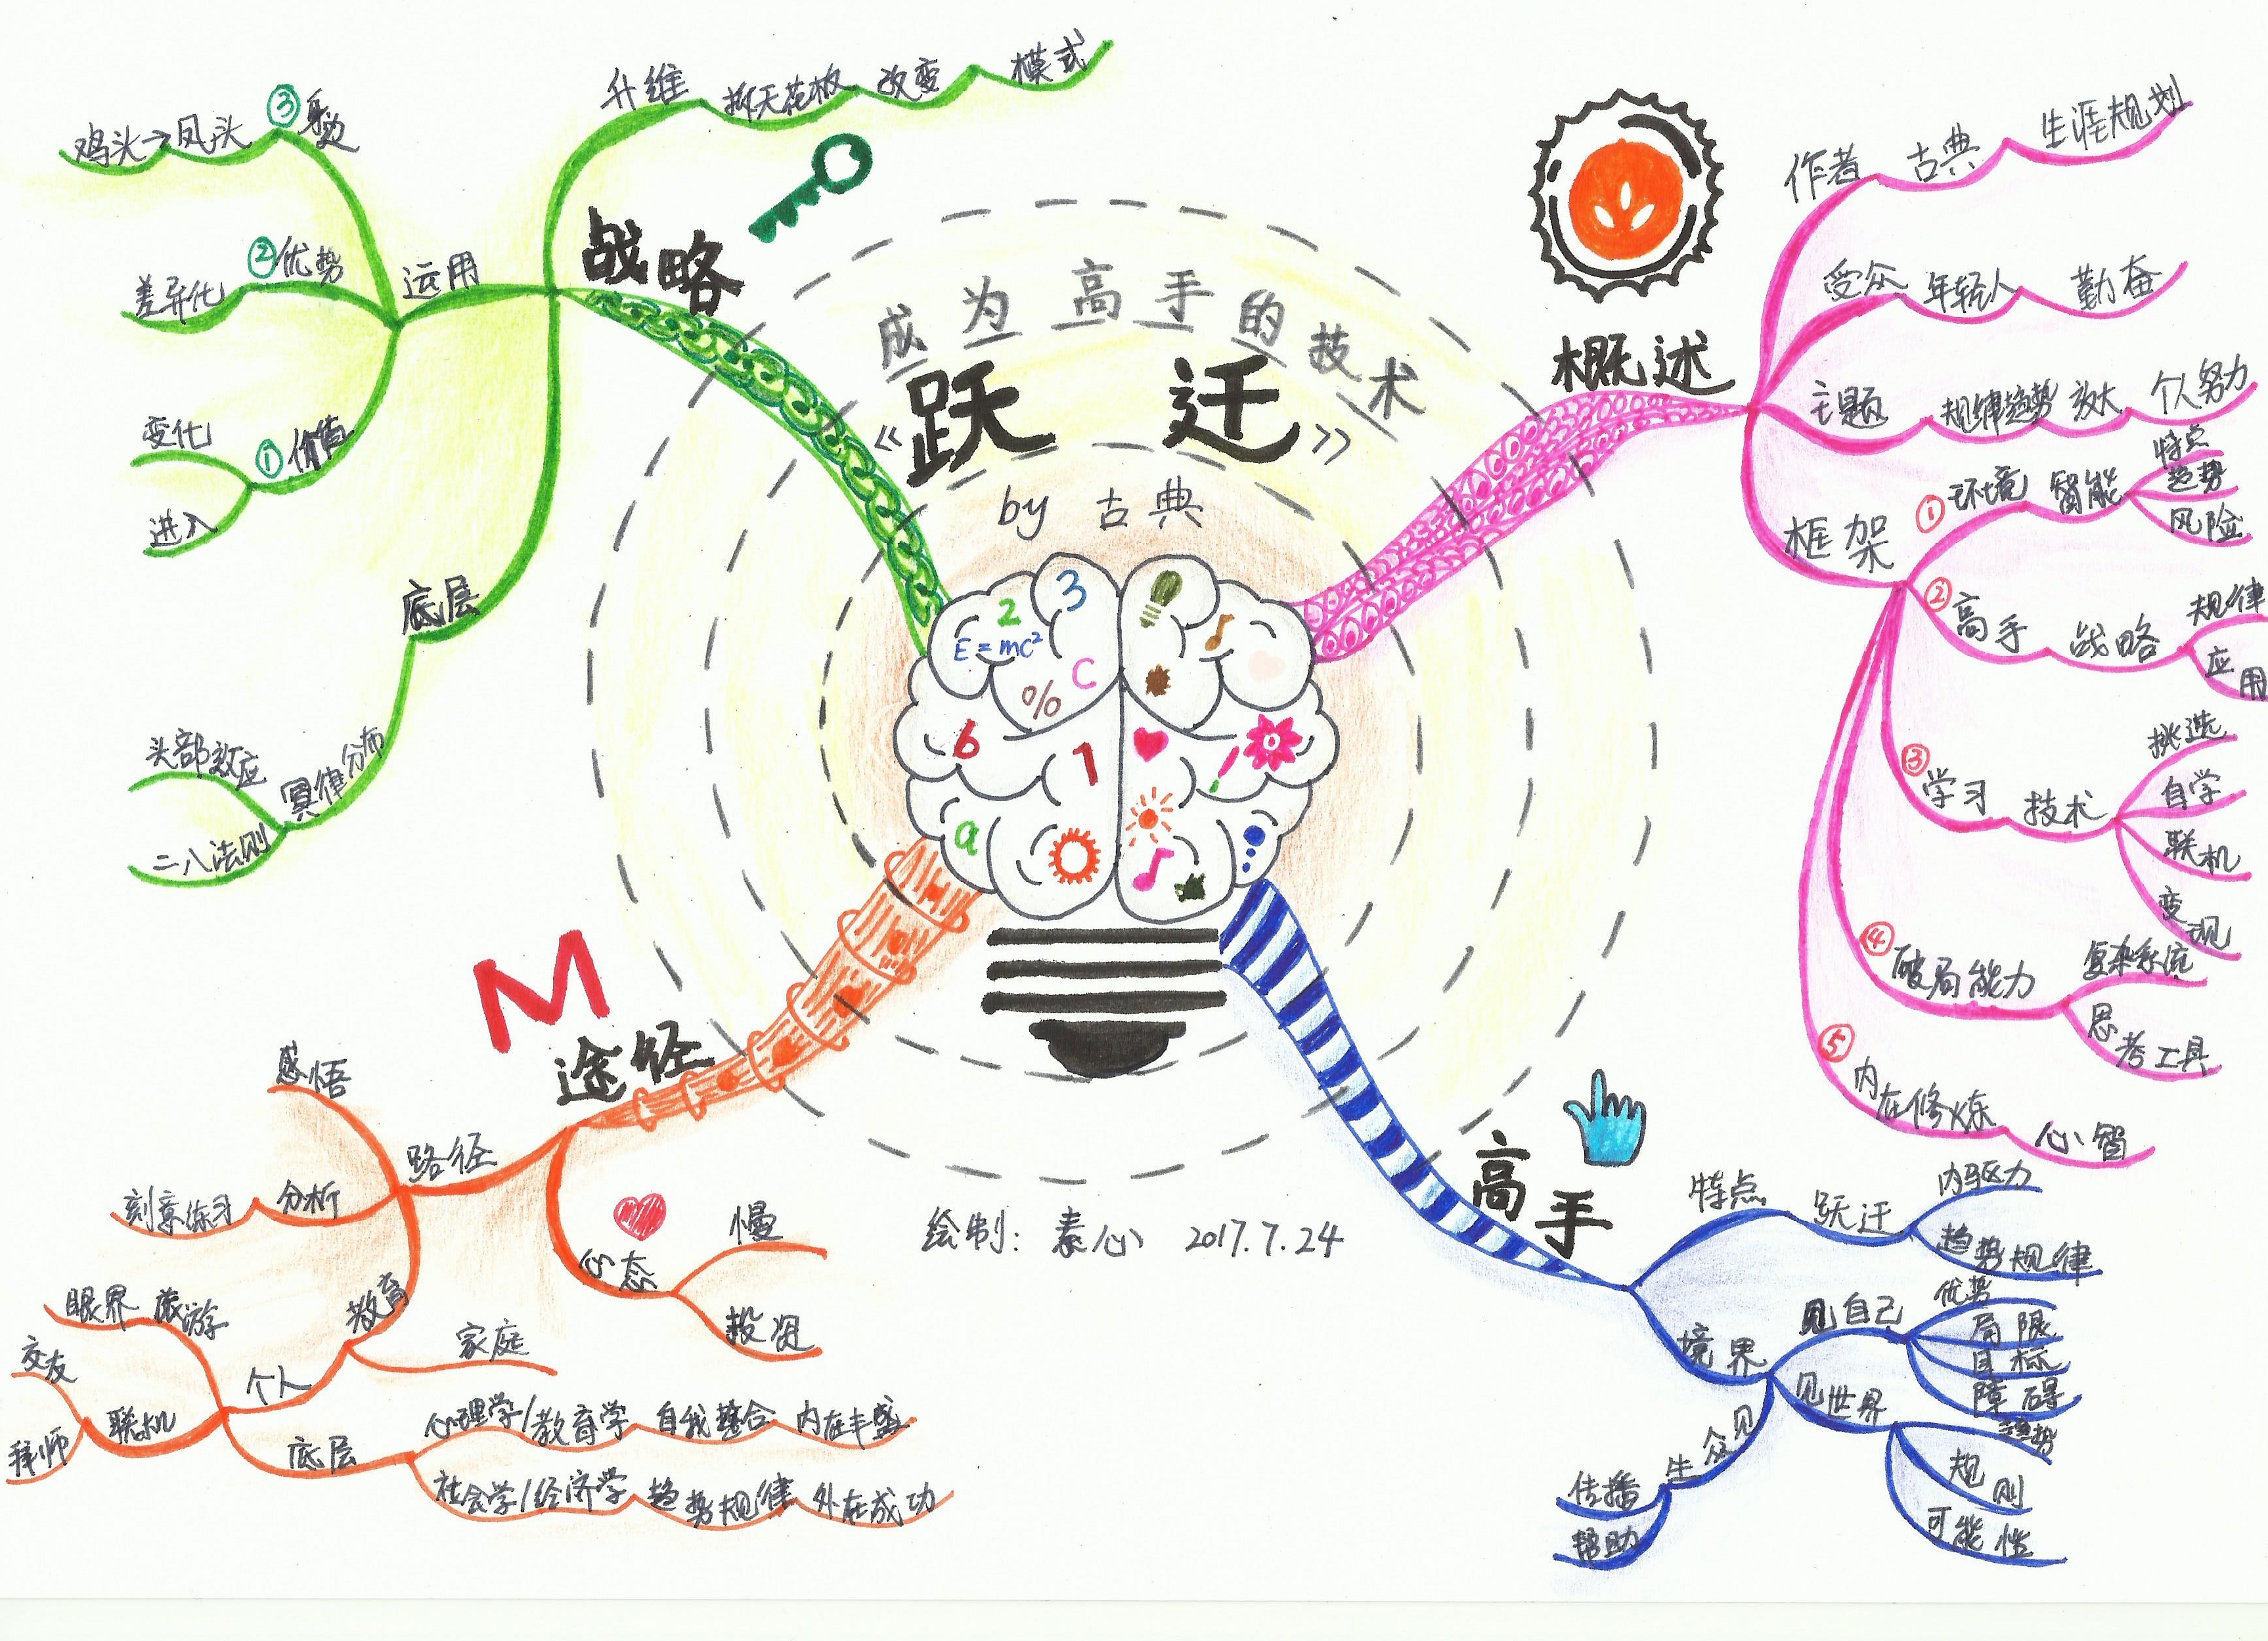 成为高手的技术
《跃迁》
by 古典
2
3
E=mc²
C
%
6
1
a
绘制：素心 2017.7.24
概述
作者 古典 生涯规划
受众 年轻人 勤奋
主题 规律趋势 放大 个人努力
框架
① 环境 智能
特点
趋势
风险
② 高手 战略
规律
应用
③ 学习 技术
挑选
自学
联机
变现
④ 破局能力
复杂系统
思考工具
⑤ 内在修炼 心智
高手
特点 跃迁
内驱力
趋势规律
境界
见自己
优势
局限
目标
障碍
见世界
趋势
规则
可能性
见众生
传播
帮助
M
途径
路径
感悟
分析 刻意练习
教育
家庭
个人
旅游 眼界
联机
交友
拜师
底层
心理学/教育学 自我整合 内在丰盛
社会学/经济学 趋势规律 外在成功
心态
慢
投资
战略
升维 拆天花板 改变 模式
运用
① 价值
变化
进入
② 优势 差异化
③ 鸡头→凤头
底层
幂律分布
头部效应
二八法则